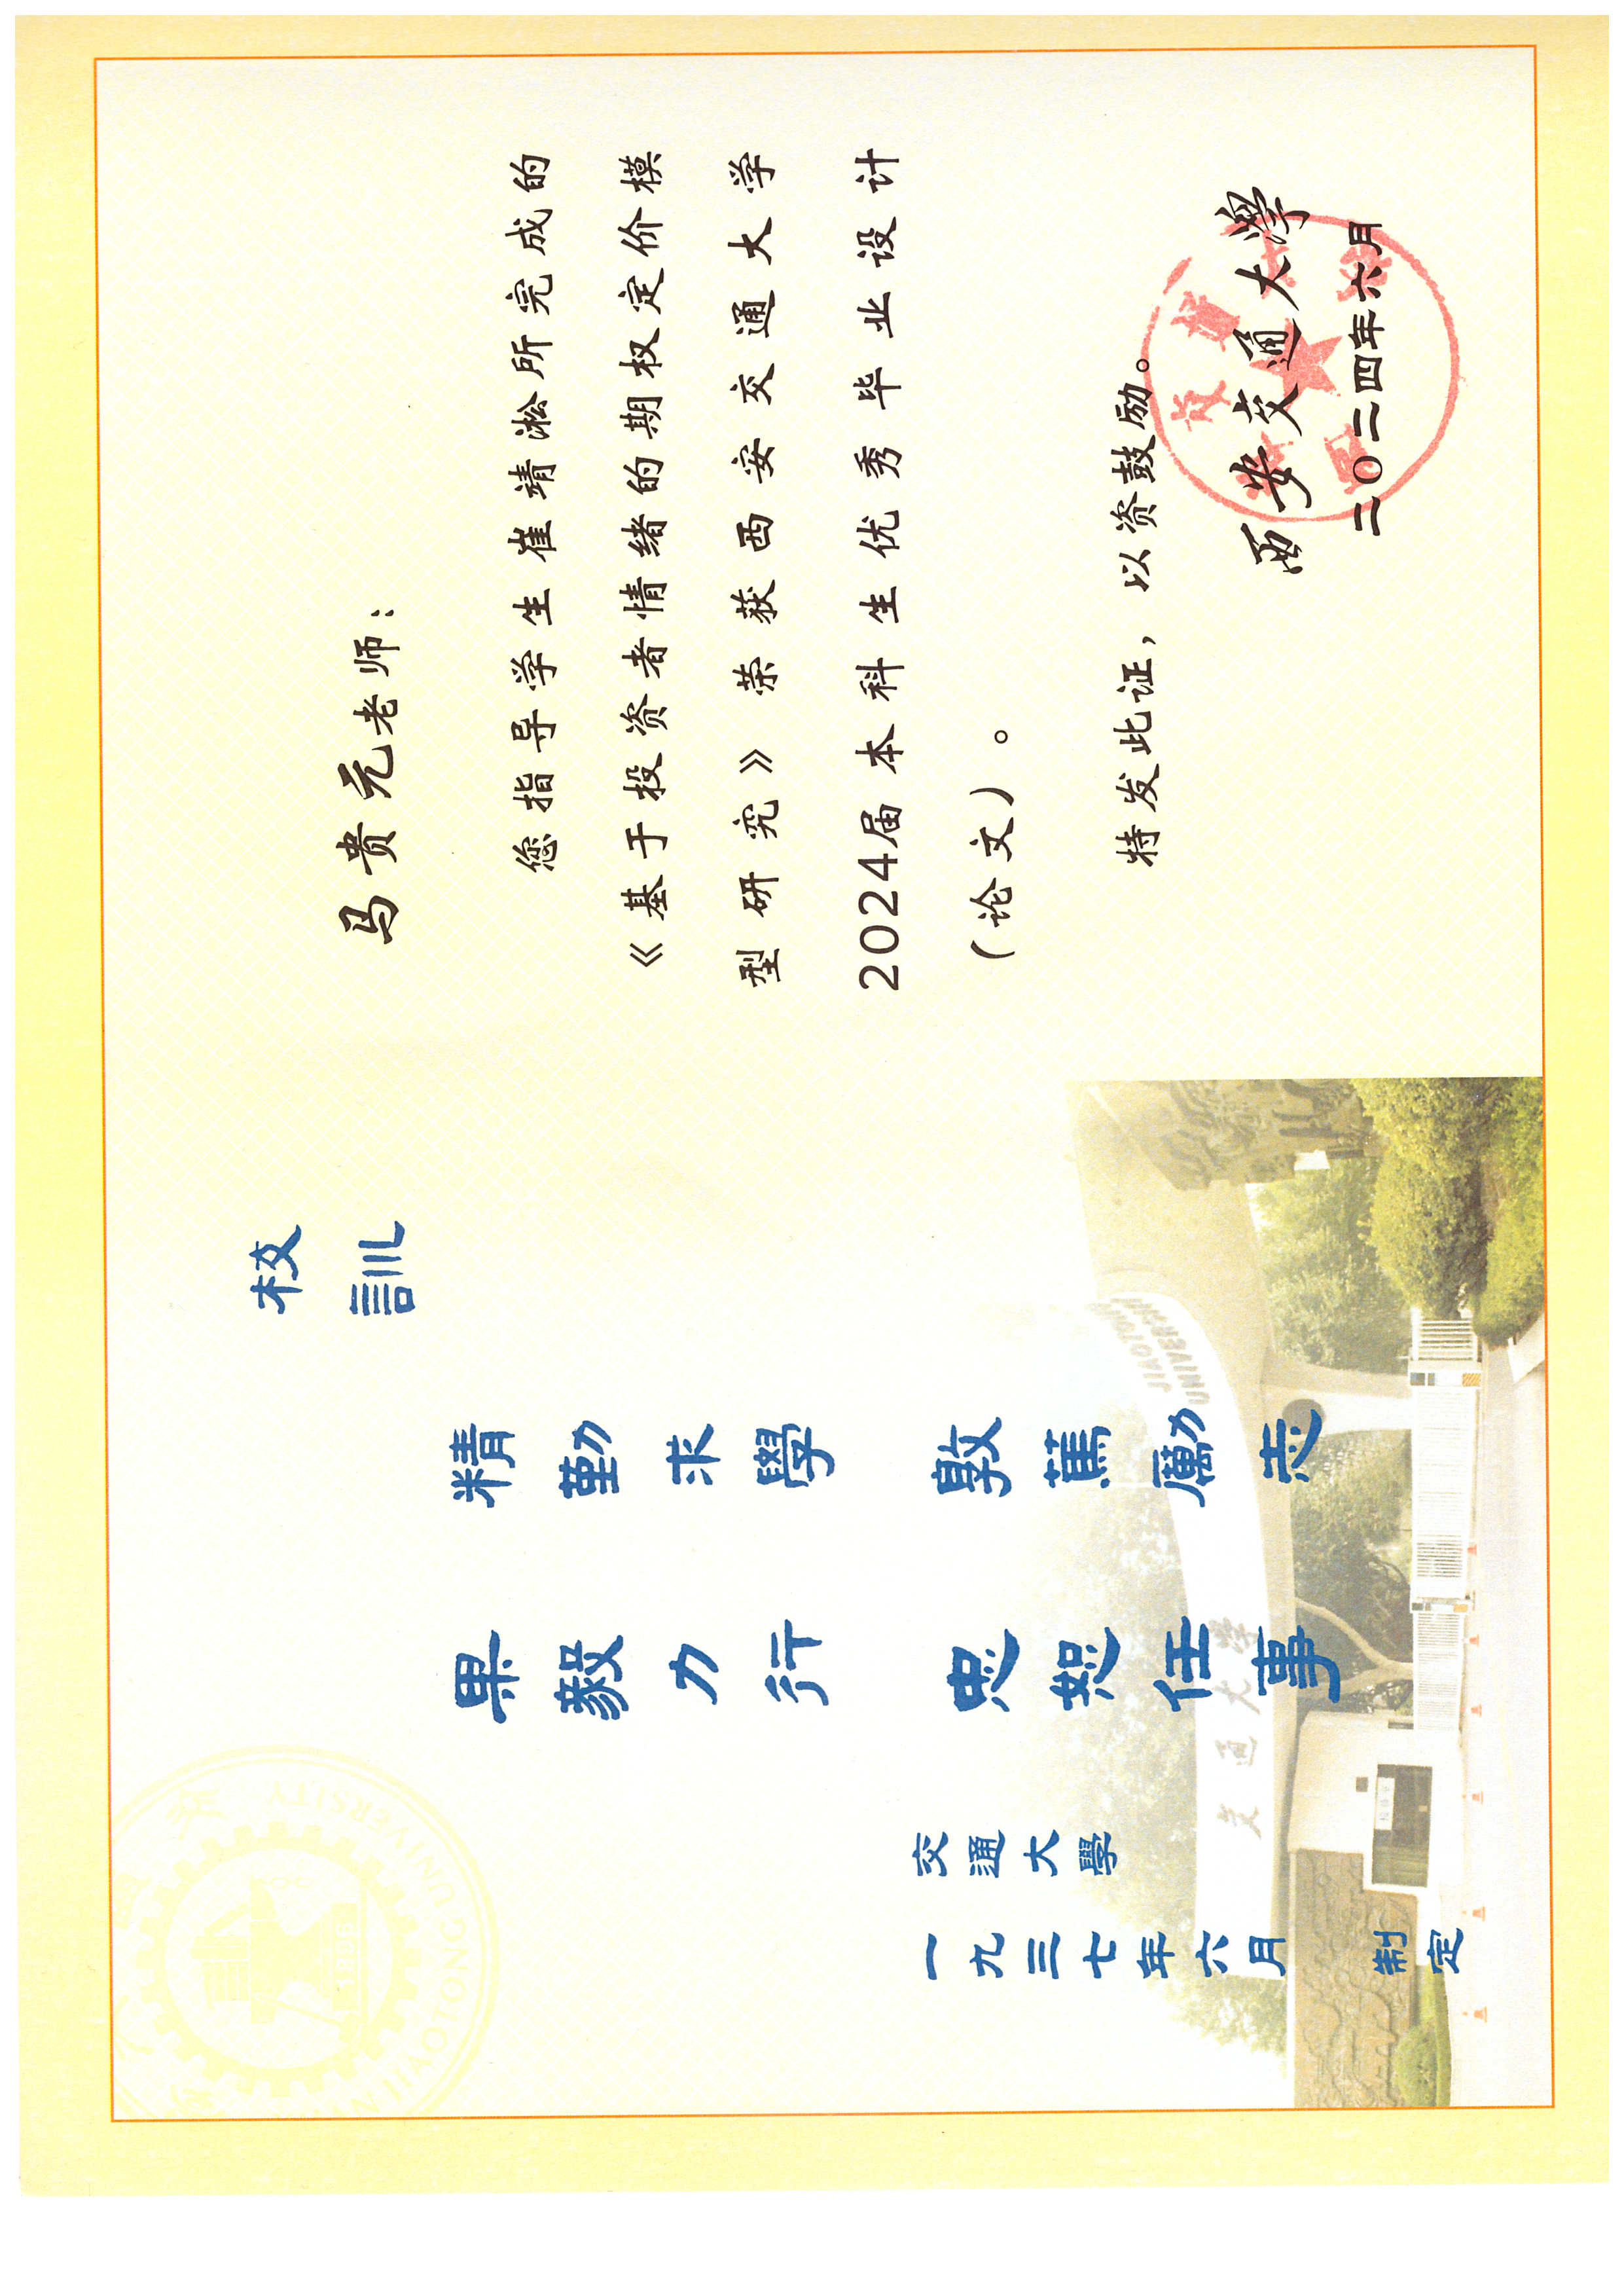 校訓
精勤求學 敦篤勵志
果毅力行 忠恕任事
交通大學
一九三七年六月 制定
JIAOTONG
UNIVERSITY
交通大学
1896
JIAOTONG UNIVERSITY
马贵元老师：
您指导学生崔靖淞所完成的
《基于投资者情绪的期权定价模
型研究》荣获西安交通大学
2024届本科生优秀毕业设计
（论文）。
特发此证，以资鼓励。
西安交通大學
二〇二四年六月